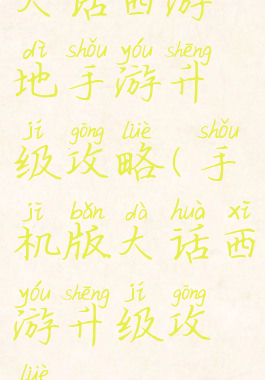 大话西游
dì shǒu yóu shēng
地手游升
jí gōng lüè shǒu
级攻略(手
jī bǎn dà huà xī
机版大话西
yóu shēng jí gōng
游升级攻
lüè